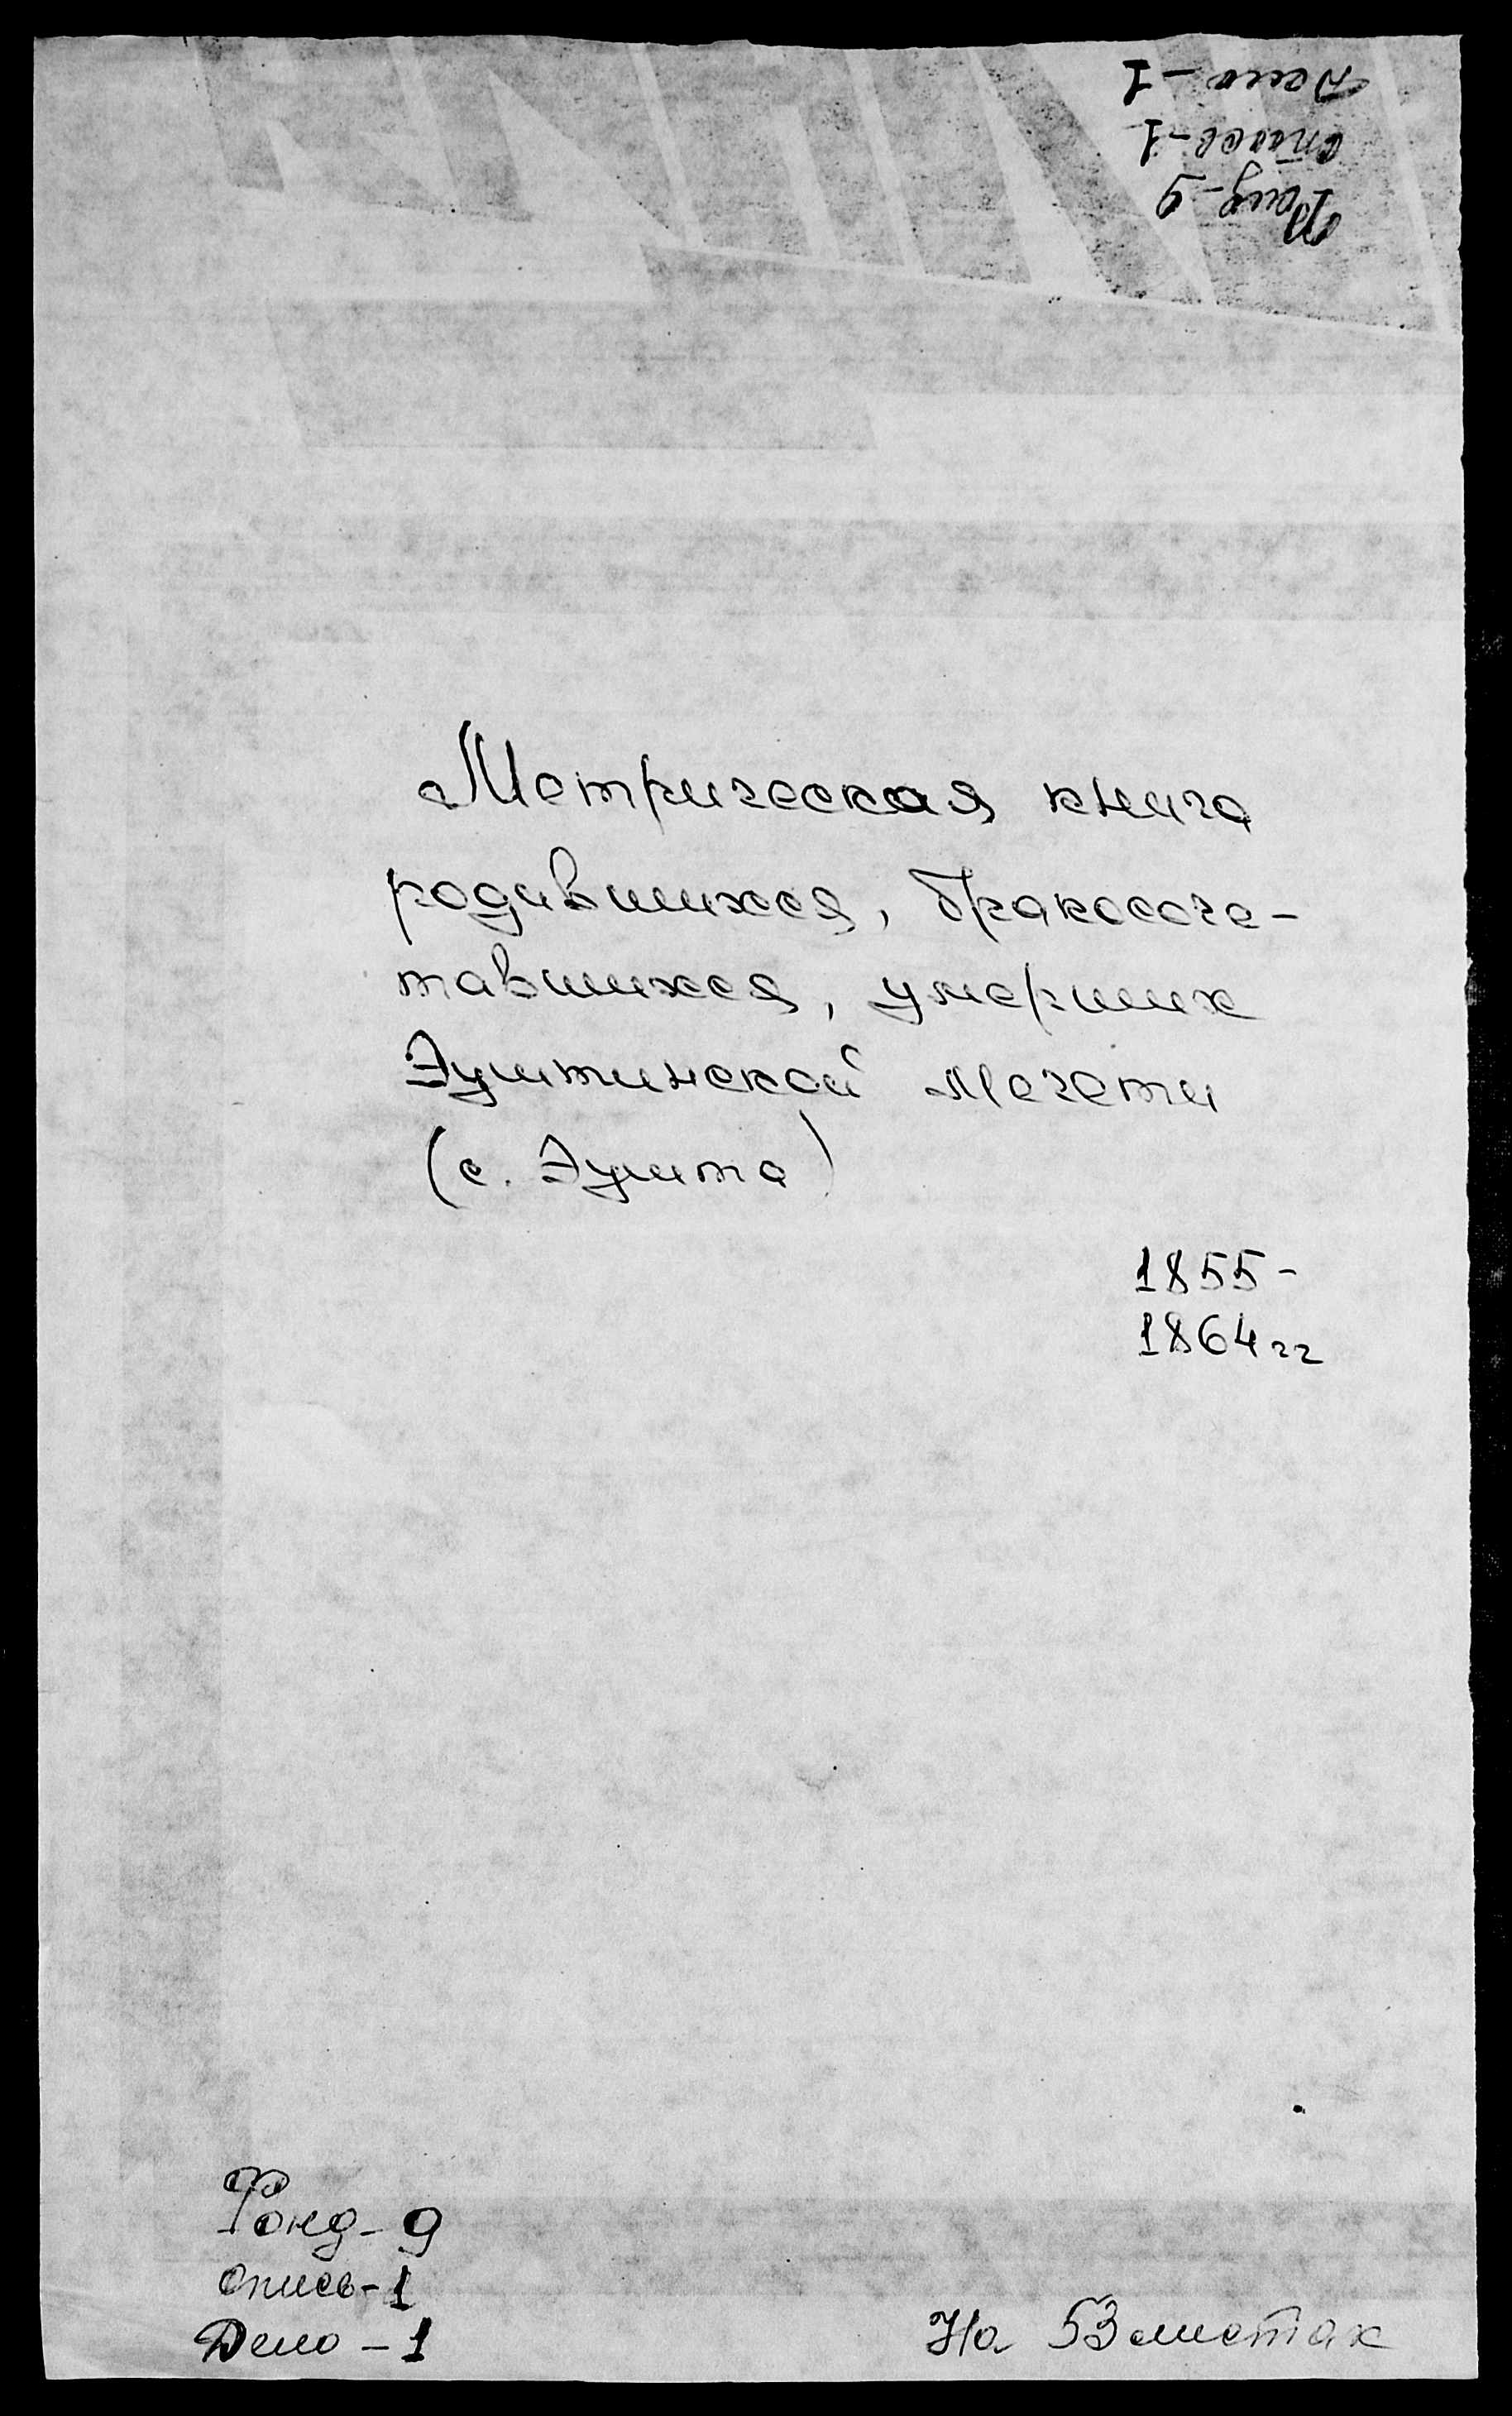 Дело - 1
опись - 1
Фонд - 9
Метрическая книга
родившихся, бракосоче-
тавшихся, умерших
Эуштинской мечети
(с. Эушта)
1855-
1864 гг
Фонд - 9
опись - 1
Дело - 1
На 53 листах